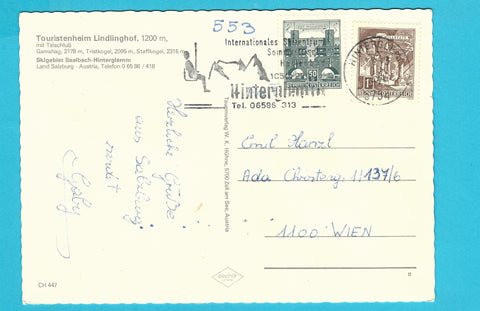 Touristenheim Lindlinghof, 1200 m,
mit Talschluß
Gamshag, 2178 m, Tristkogel, 2095 m, Staffkogel, 2316 m
Skigebiet Saalbach-Hinterglemm
Land Salzburg - Austria, Telefon 0 65 86 / 418
553
Internationales
Hinterglemm
Tel. 06586 313
50
5754
Herzliche Grüße
aus Salzburg
sendet
Gaby
Tauernverlag W. K. Hühne, 5700 Zell am See, Austria
Emil
Ada Christeng. 1/137/6
1100 WIEN
CH 447